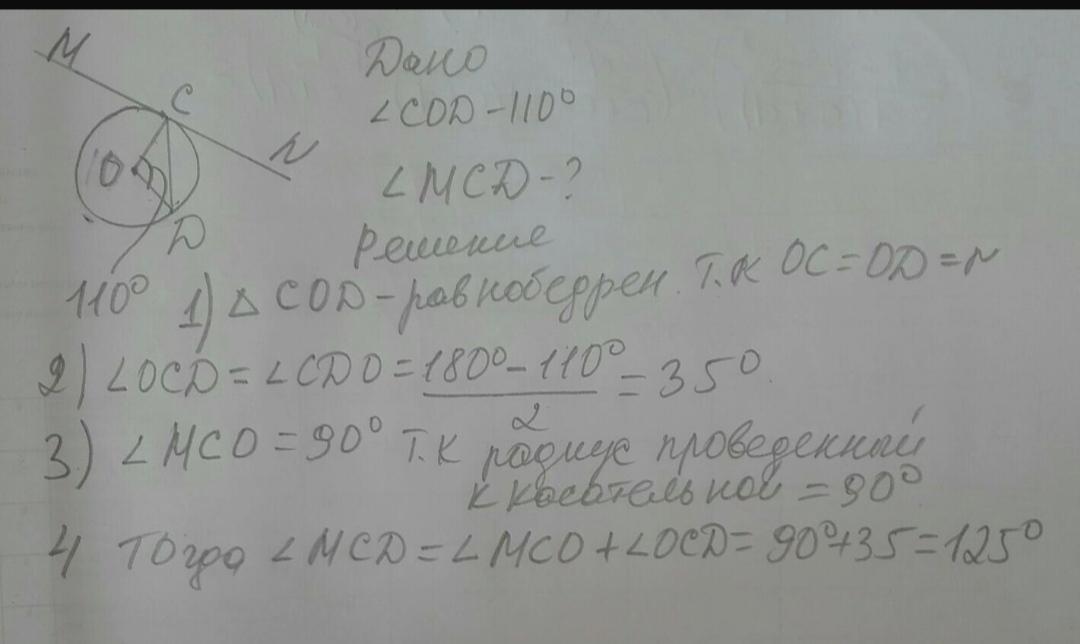 M
C
O
N
D
110°
Дано
∠COD-110°
∠MCD-?
Решение
1) △ COD-равнобедрен. Т.К OC=OD=r
2) ∠OCD=∠CDO=180°-110°/2=35°.
3) ∠MCO=90° Т.К радиус проведенный
к касательной =90°
4 Тогда ∠MCD=∠MCO+∠OCD=90°+35=125°